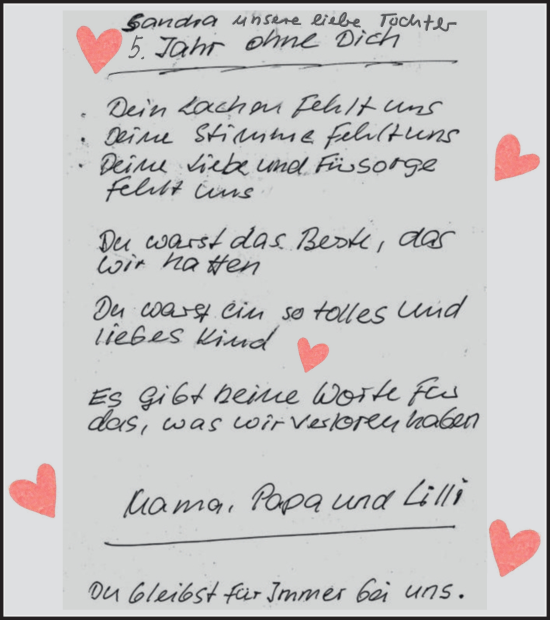 Sandra unsere liebe Tochter
5. Jahr ohne Dich
· Dein Lachen fehlt uns
· Deine Stimme fehlt uns
· Deine Liebe und Fürsorge
fehlt uns
Du warst das Beste, das
wir hatten
Du warst ein so tolles und
liebes Kind
Es gibt keine Worte für
das, was wir verloren haben
Mama, Papa und Lilli
Du bleibst für Immer bei uns.